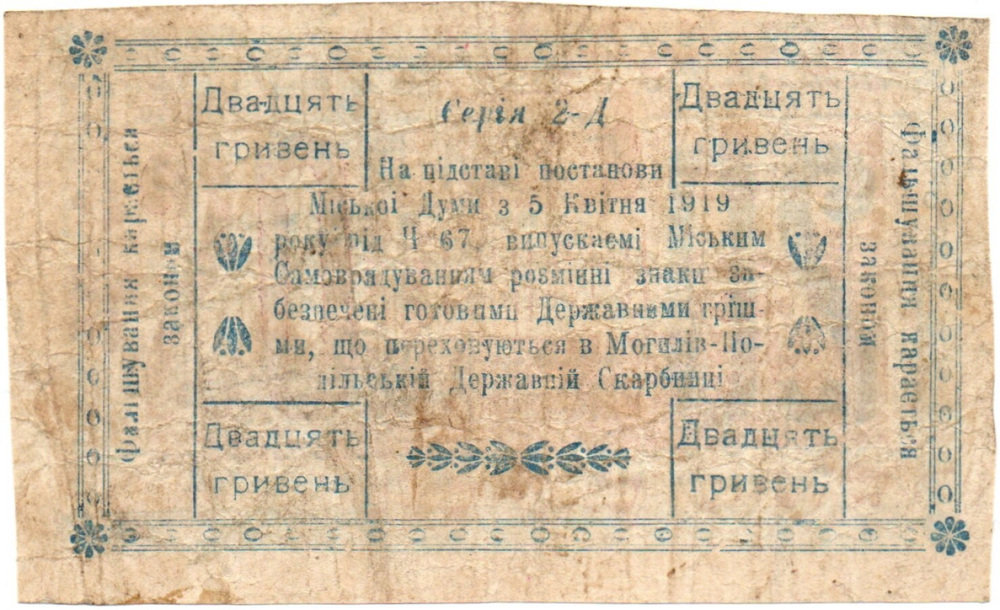 Двадцять
гривень
Серія 2-Д
Двадцять
гривень
На підставі постанови
Міської Думи з 5 Квітня 1919
року під Ч 67, випускаємі Міським
Самоврядуванням розмінні знаки за-
безпечені готовими Державними гріш-
ми, що переховуються в Могилів-По-
дільській Державній Скарбниці
Двадцять
гривень
Двадцять
гривень
Фальшування карається
законом
Фальшування карається
законом